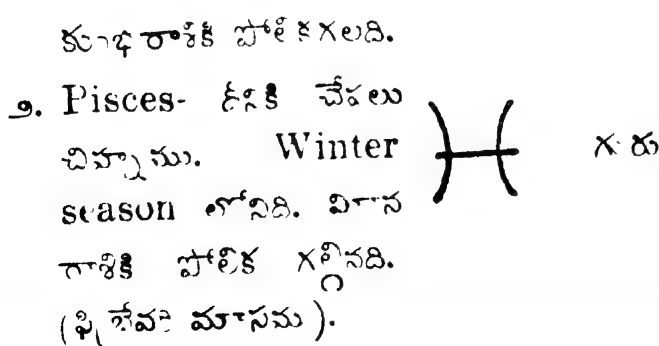 కుంభ రాశికి పోలికగలది.
౨. Pisces- దీనికి చేపలు
చిహ్నము. Winter గురు
season లోనిది. మీన
రాశికి పోలిక గల్గినది.
(ఫిబ్రవరి మాసము).